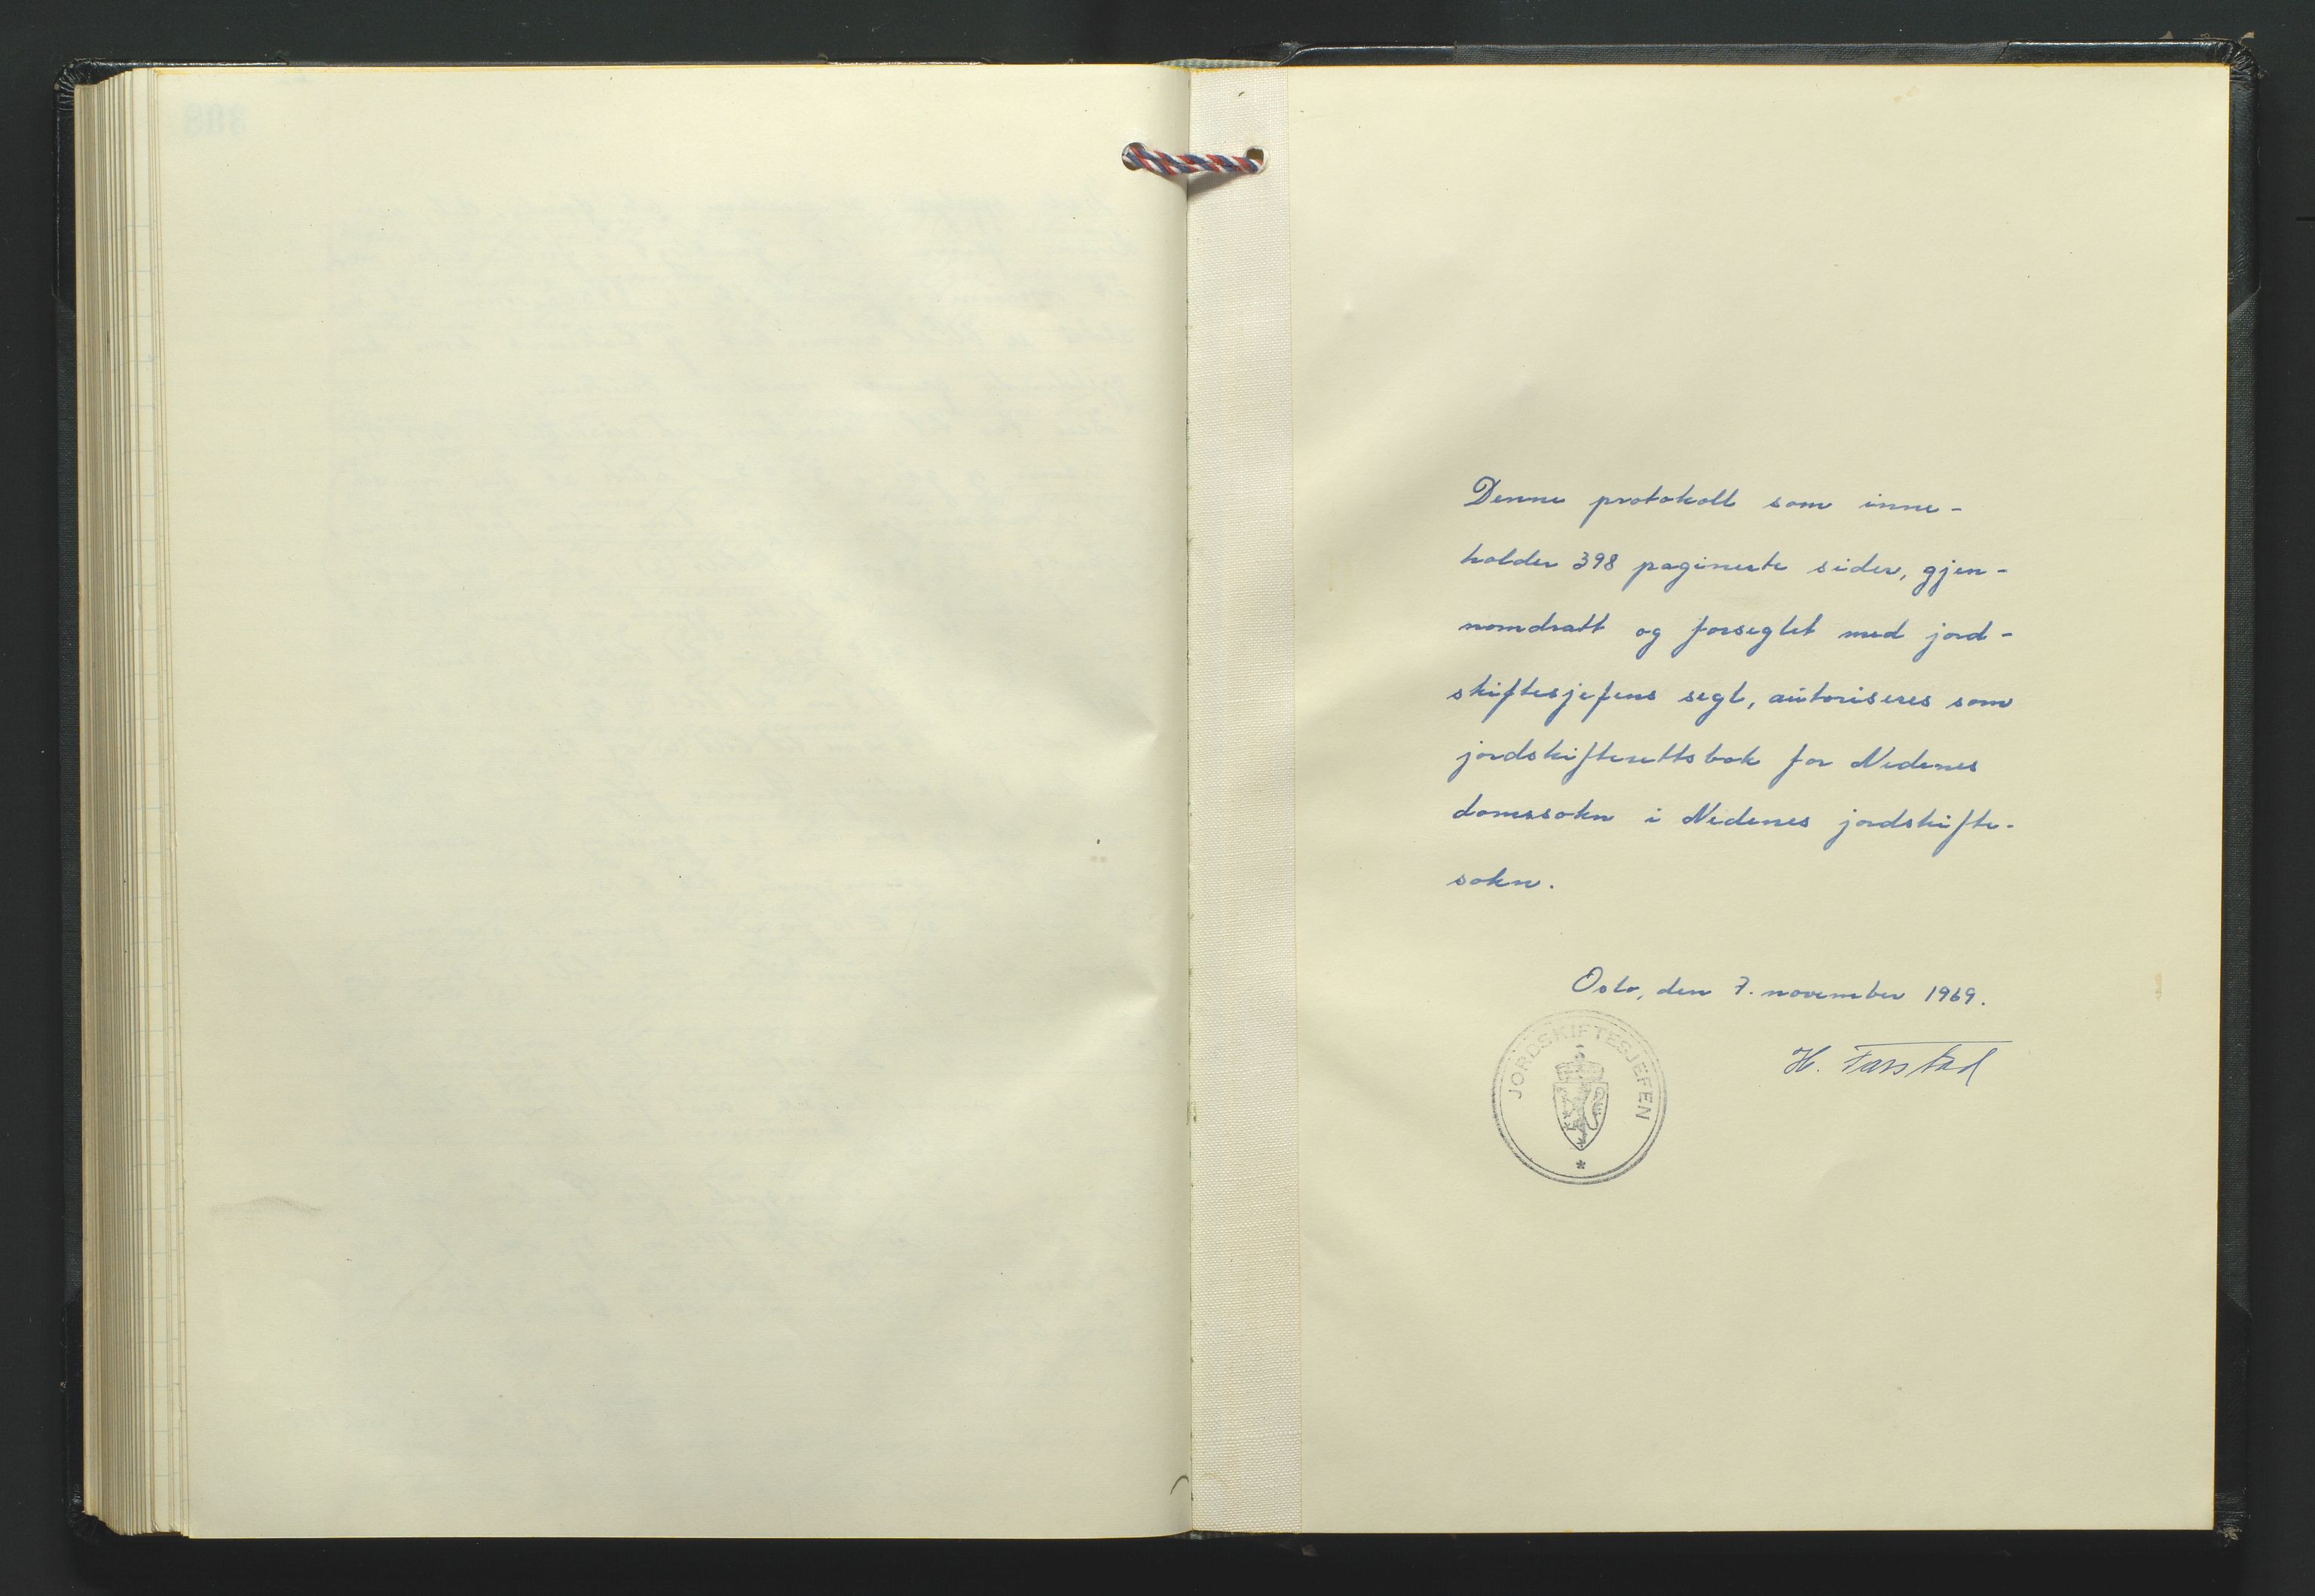 Denne protokoll som inne-
holder 398 paginerte sider, gjen-
nomdratt og forseglet med jord-
skiftesjefens segl, autoriseres som
jordskifterettsbok for Nedenes
domssokn i Nedenes jordskifte-
sokn.
Oslo, den 7. november 1969.
H. Farstad
JORDSKIFTESJEFEN
*